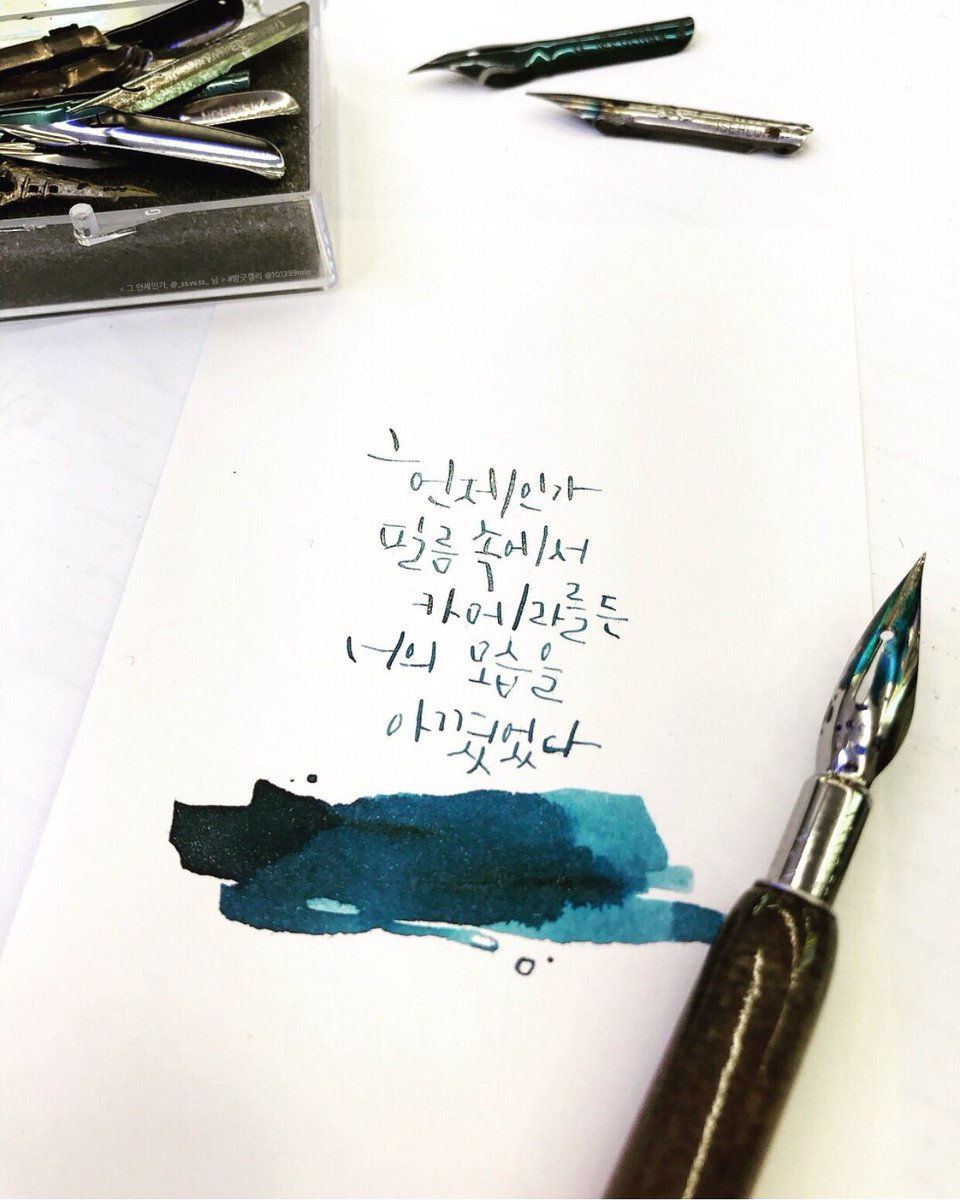 < 그 언제인가, @_ss.vv.ss_ 님 > #방긋캘리 @101399min
그
언제인가
필름 속에서
카메라를 든
너의 모습을
아꼈었다